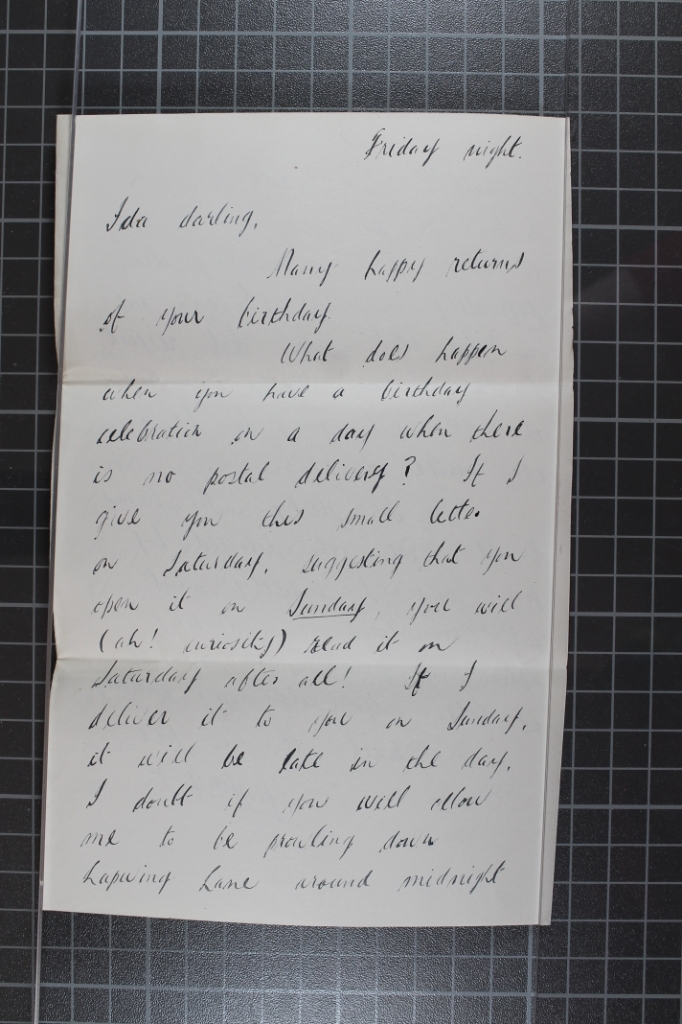 Friday night.
Ida darling,
Many happy returns
of your birthday
What does happen
when you have a birthday
celebration on a day when there
is no postal delivery? If I
give you this small letter
on Saturday, suggesting that you
open it on Sunday, you will
(ah! curiosity) read it on
Saturday after all! If I
deliver it to you on Sunday,
it will be late in the day.
I doubt if you will allow
me to be prowling down
Lapwing Lane around midnight